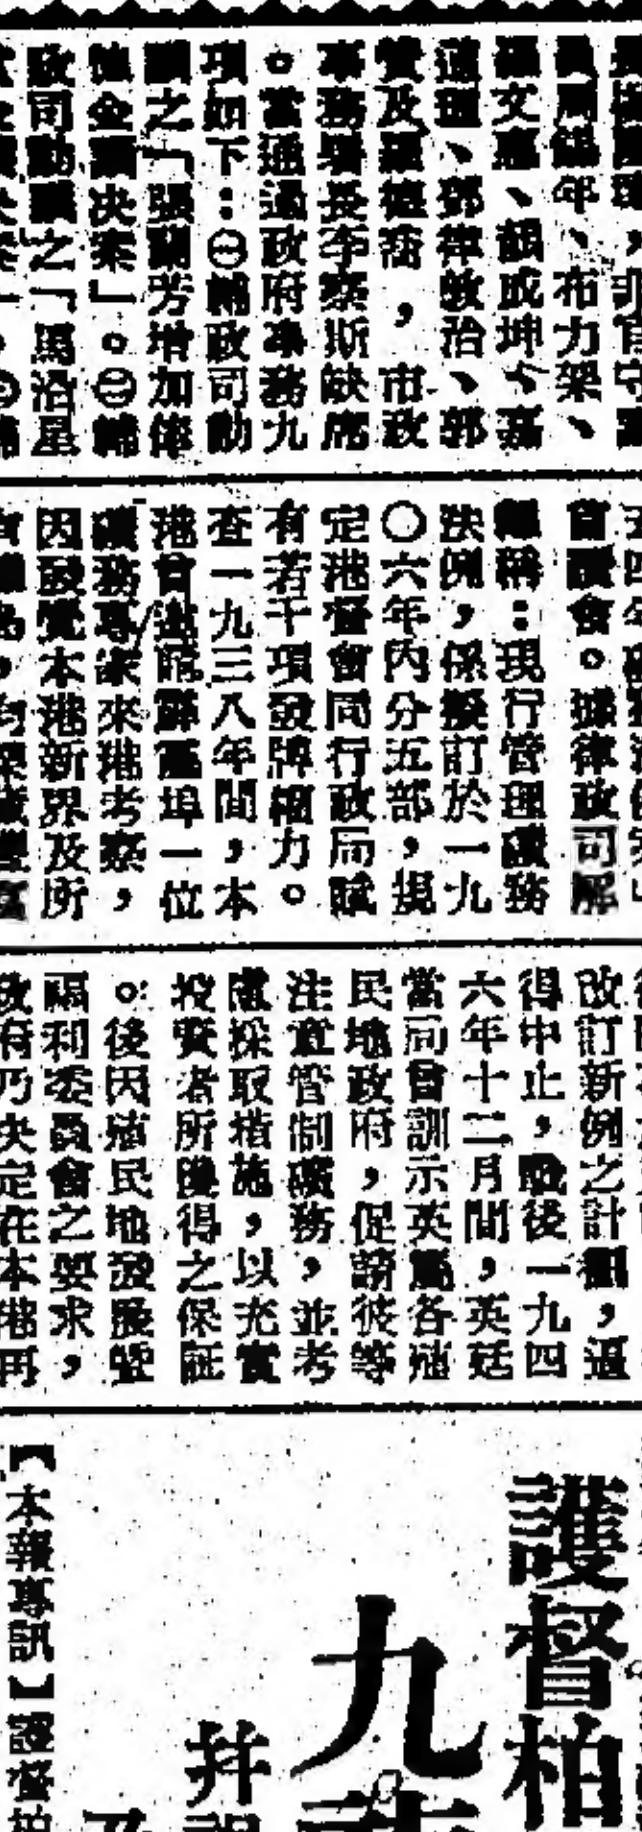 非官守議
周錫年、布力架、
文惠、顏成坤、嘉
道理、鄧律敦治、郭
贊及羅德喬，市政
事務署長李察斯缺席
。當通過政府事務九
項如下：㊀輔政司動
議之「張蘭芳增加俸
恤金議決案」。㊁輔
政司動議之「馬沿星
會議會。據律政司解
釋稱：現行管理礦務
決例，係擬訂於一九
〇六年內分五部，規
定港督會同行政局賦
有若干項發牌權力。
查一九三八年間，本
港曾邀 一位
礦務專家來港考察，
因發覺本港新界及所
改訂新例之計劃，遏
得中止，戰後一九四
六年十二月間，英廷
當局曾訓示英屬各殖
民地政府，促請彼等
注意管制礦務，並考
慮採取措施，以充實
投資者所獲得之保証
。後因殖民地發展暨
福利委員會之要求，
政府乃決定在本港再
護督柏
九
幷
【本報專訊】護督柏